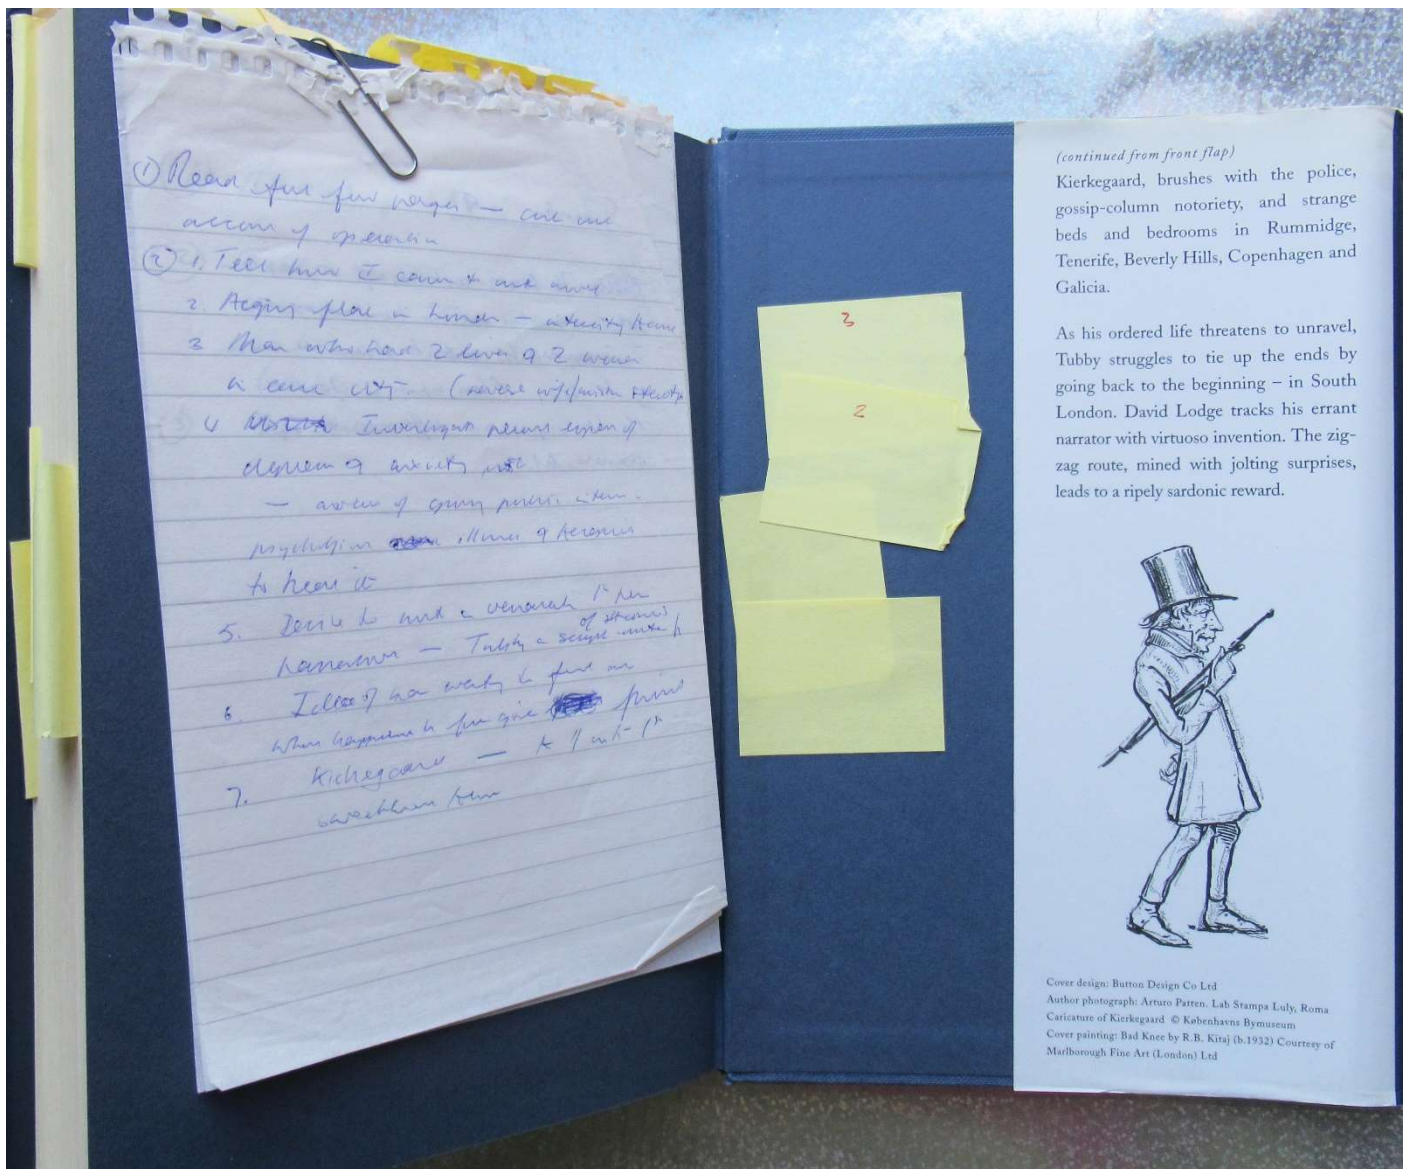 ① Read first few pages —
account of operation
② 1. Tell how I came to write novel
2. Acquiring flat in London — intercity train
3 Man who had 2 lives & 2 women
in
4 Investigate personal experience of
depression & anxiety
— area of growing public
psychological illness &
to heal it
5. Desire to write a 1st person
narrative — Tubby a script-writer
of sitcoms
6. Idea of man wanting to find
what happened to his first girl friend
7. Kierkegaard —
sweetheart
3
2
(continued from front flap)
Kierkegaard, brushes with the police,
gossip-column notoriety, and strange
beds and bedrooms in Rummidge,
Tenerife, Beverly Hills, Copenhagen and
Galicia.
As his ordered life threatens to unravel,
Tubby struggles to tie up the ends by
going back to the beginning – in South
London. David Lodge tracks his errant
narrator with virtuoso invention. The zig-
zag route, mined with jolting surprises,
leads to a ripely sardonic reward.
Cover design: Button Design Co Ltd
Author photograph: Arturo Patten. Lab Stampa Luly, Roma
Caricature of Kierkegaard © Københavns Bymuseum
Cover painting: Bad Knee by R.B. Kitaj (b.1932) Courtesy of
Marlborough Fine Art (London) Ltd